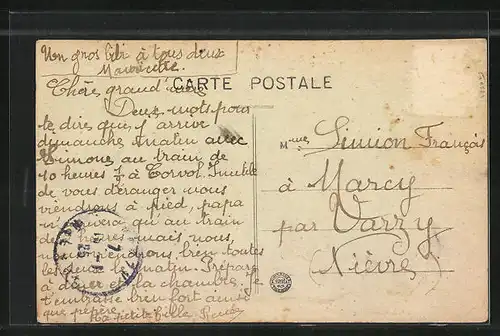 Un gros à tous deux
Mauricette.
CARTE POSTALE
Chère grand'
Deux mots pour
te dire que j'arrive
dimanche matin avec
Simone au train de
10 heures ½ à Corvol. Inutile
de vous déranger nous
viendrons à pied, papa
n' qu'au train
des heures mais nous,
nous viendrons bien toutes
le matin. Prépare
à dîner la chambre. Je
t'embrasse bien fort ainsi
que pépère.
ta petite fille
Mme Simion François
à Marcy
par Varzy
(Nièvre)